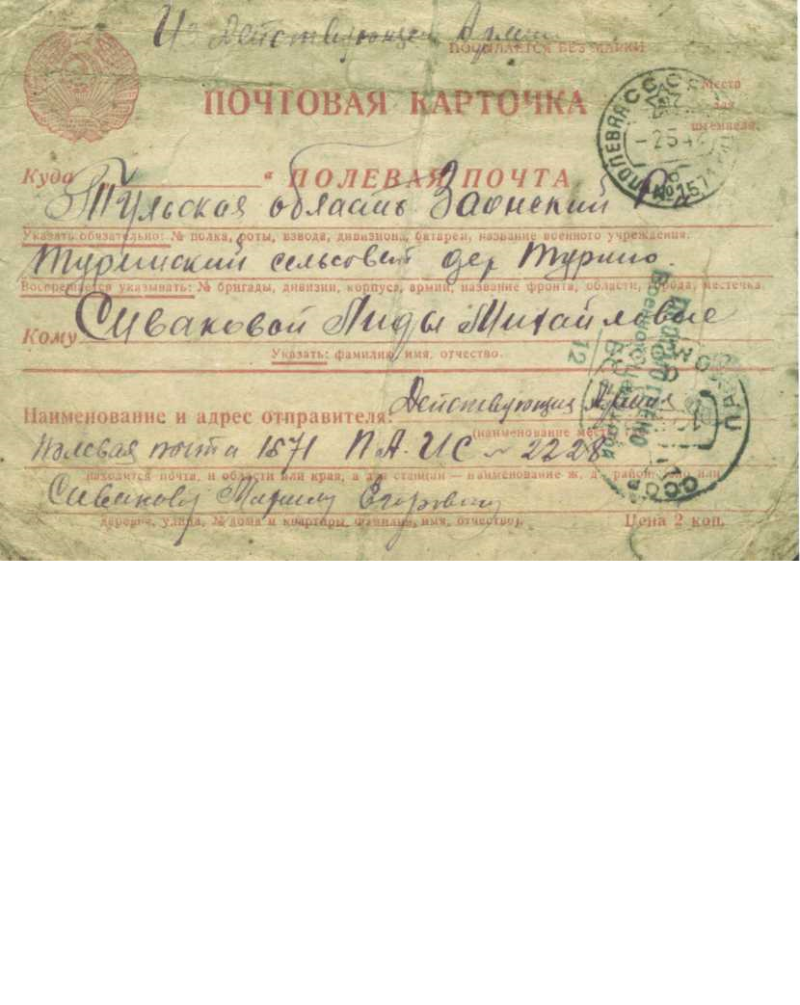 Из Действующей Армии
ПОСЫЛАЕТСЯ БЕЗ МАРКИ
ПОЧТОВАЯ КАРТОЧКА
Место
для
штемпеля.
ПОЛЕВАЯ СССР
-2 5 42
№1571
Куда
"ПОЛЕВАЯ ПОЧТА
Тульская область Заокский Р
Указать обязательно: № полка, роты, взвода, дивизиона, батареи, название военного учреждения.
Туринский сельсовет дер Турино.
Воспрещается указывать: № бригады, дивизии, корпуса, армии, название фронта, области, города, местечка.
Кому Сиваковой Лиды Михайловне
Указать: фамилия, имя, отчество.
ПРОСМОТРЕНО
Военной Цензурой
12
Наименование и адрес отправителя: Действующия Армия
(наименование места, где
Полевая почта 1571 П.А.ИС № 2228
находится почта, и области или края, а для станции — наименование ж. д., район, село или
Сивакову Егоровичу
деревне, улица, № дома и квартиры, фамилия, имя, отчество).
Цена 2 коп.
СССР